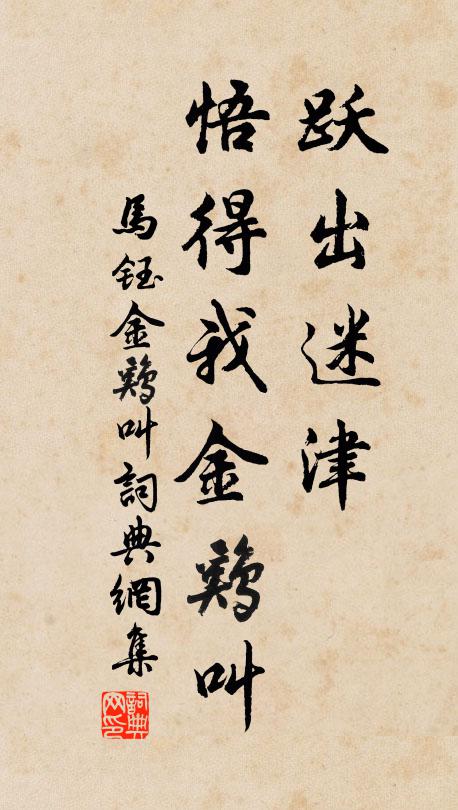 跃出迷津
悟得我金鷄叫
馬鈺金鷄叫詞典網集
詞典网印